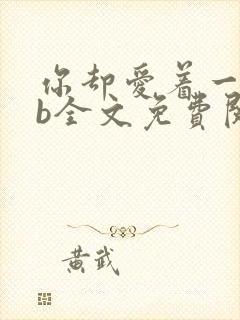 你却爱着一
b全文免費阅
黄武